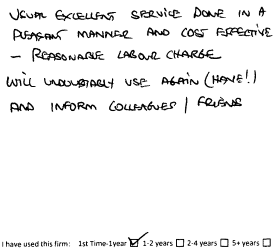 USUAL EXCELLENT SERVICE DONE IN A
PLEASANT MANNER AND COST EFFECTIVE
- REASONABLE LABOUR CHARGE
WILL UNDOUBTABLY USE AGAIN (HAVE!)
AND INFORM COLLEAGUES / FRIENDS
I have used this firm: 1st Time-1year ☑ 1-2 years ☐ 2-4 years ☐ 5+ years ☐